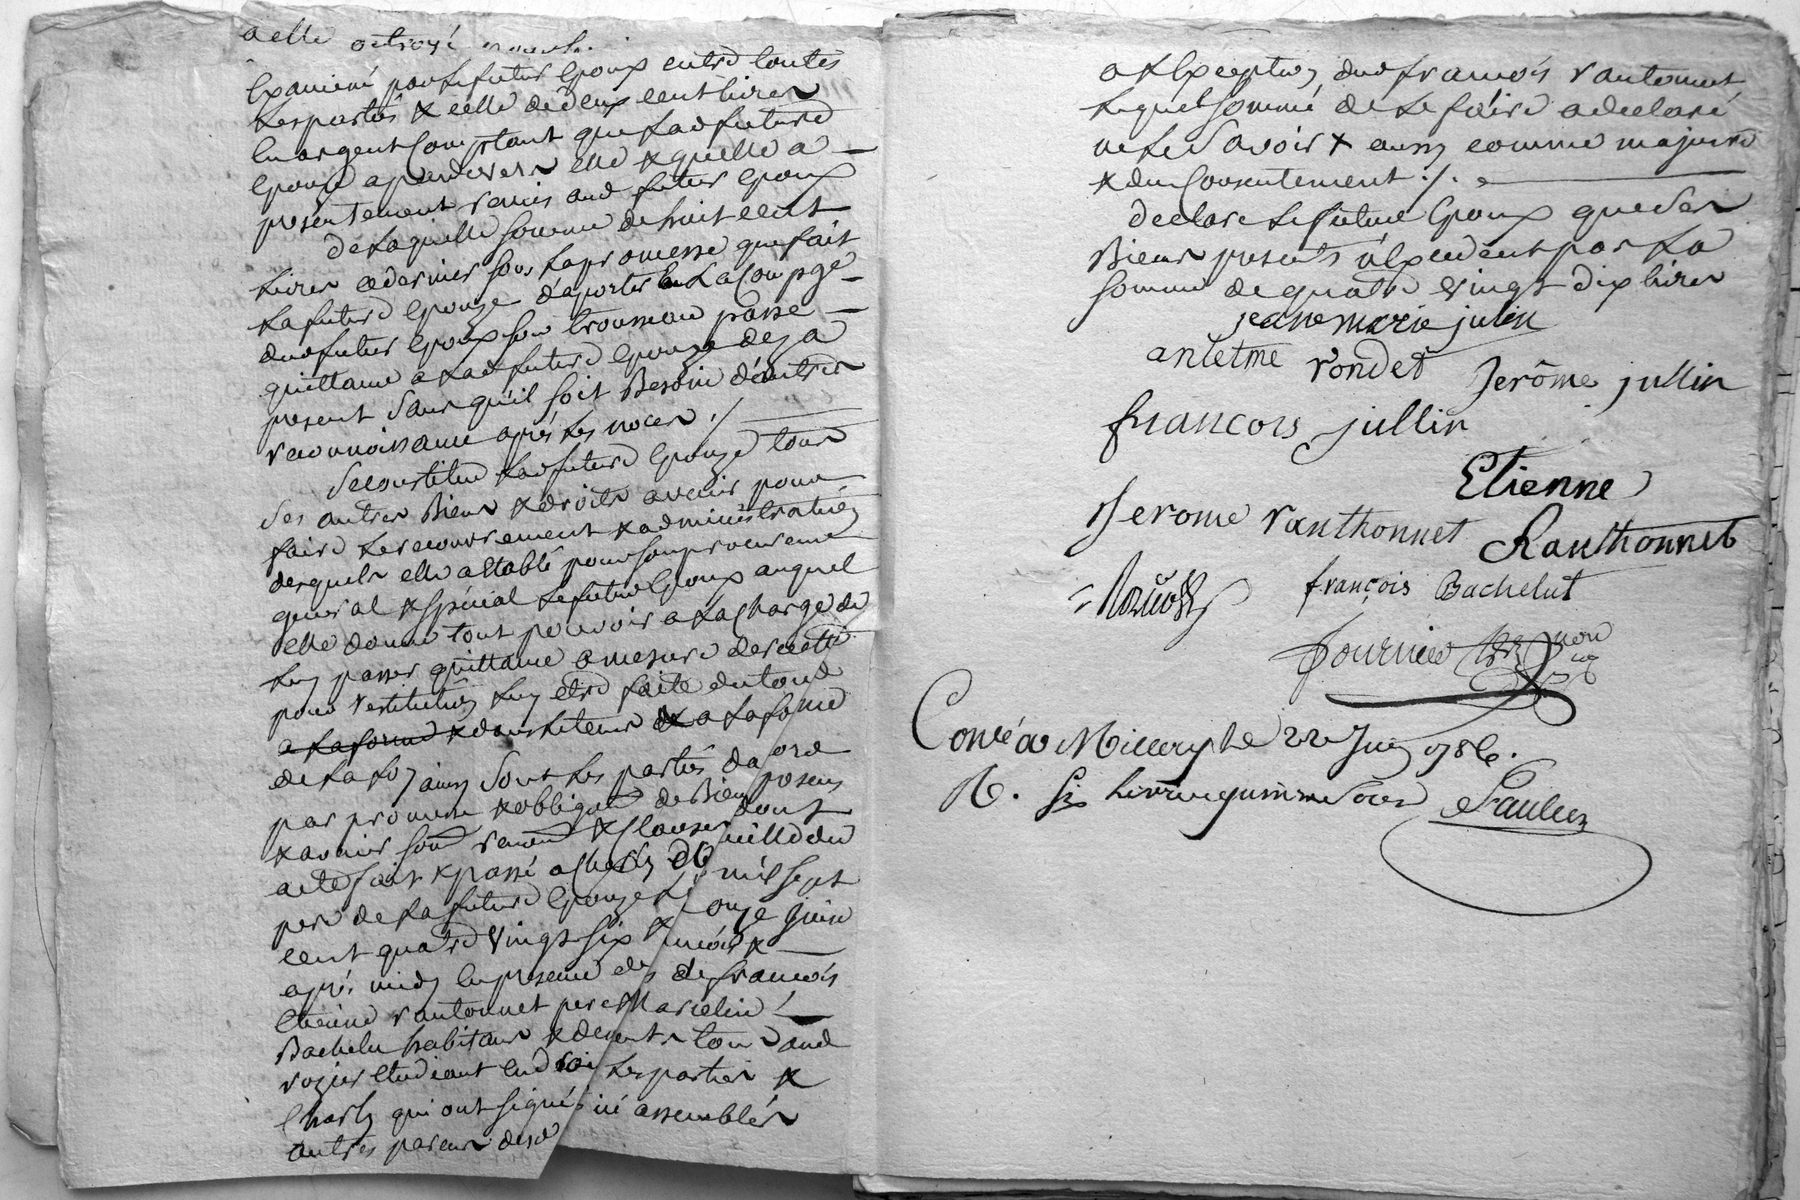 a elle octroyé
Examiné par le futur Epoux entre toutes
les parties & celle de deux cent livres
En argent Comptant que lad future
Epouze a pardevers elle & quelle a
présentement remis aud futur Epoux
de laquelle somme de huit cent
livres ce dernier sous la promesse que fait
la future Epouze d'aporter en la Compge
dud futur Epoux son trousseau passe
quittance a lad future Epouze deja
present sans qu'il soit Besoin d'autres
reconnoissance aprés les noces ./.
Se constitue lad future Epouze tous
ses autres Biens & droits avenir pour
faire le recouvrement & administration
desquels elle a etabli pour son procureur
general & spécial le futur Epoux auquel
elle donne tout pouvoir a la Charge de
luy passer quittance a mesure de recette
pour restitution luy etre faite du tout
a la forme & dans le tems & a la forme
de la loy ainsy sont les parties d'acord
par promesse & obligaon de Biens presens
& avenir soum renon & Clauses dont
acte fait & passé a Charly domicille du
pere de la future Epouze L mil sept
cent quatre vingt six & onze Juin
aprés midy En presence de
Etienne rantonnet pere de francois
Bachelu habitans &
rozier etudiant End tous deux aud
Charly qui ont signés les parties &
autres parens icé assemblés
a l'Exception dud francois rantonnet
lequel sommé de le faire a declaré
ne le savoir & aussy comme majeure
& du Consentement ./.
declare le futur Epoux que ses
Biens presents n'Excedent pas la
somme de quatre vingt dix livres
jeane marie julin
antelme rondet Jerôme jullin
francois jullin
Etienne
Jerome ranthonnet Ranthonnet
françois Bachelut
fournier
Conlé a Millery le 22 Juin 1786.
R. Six livres quinze sols Paulin